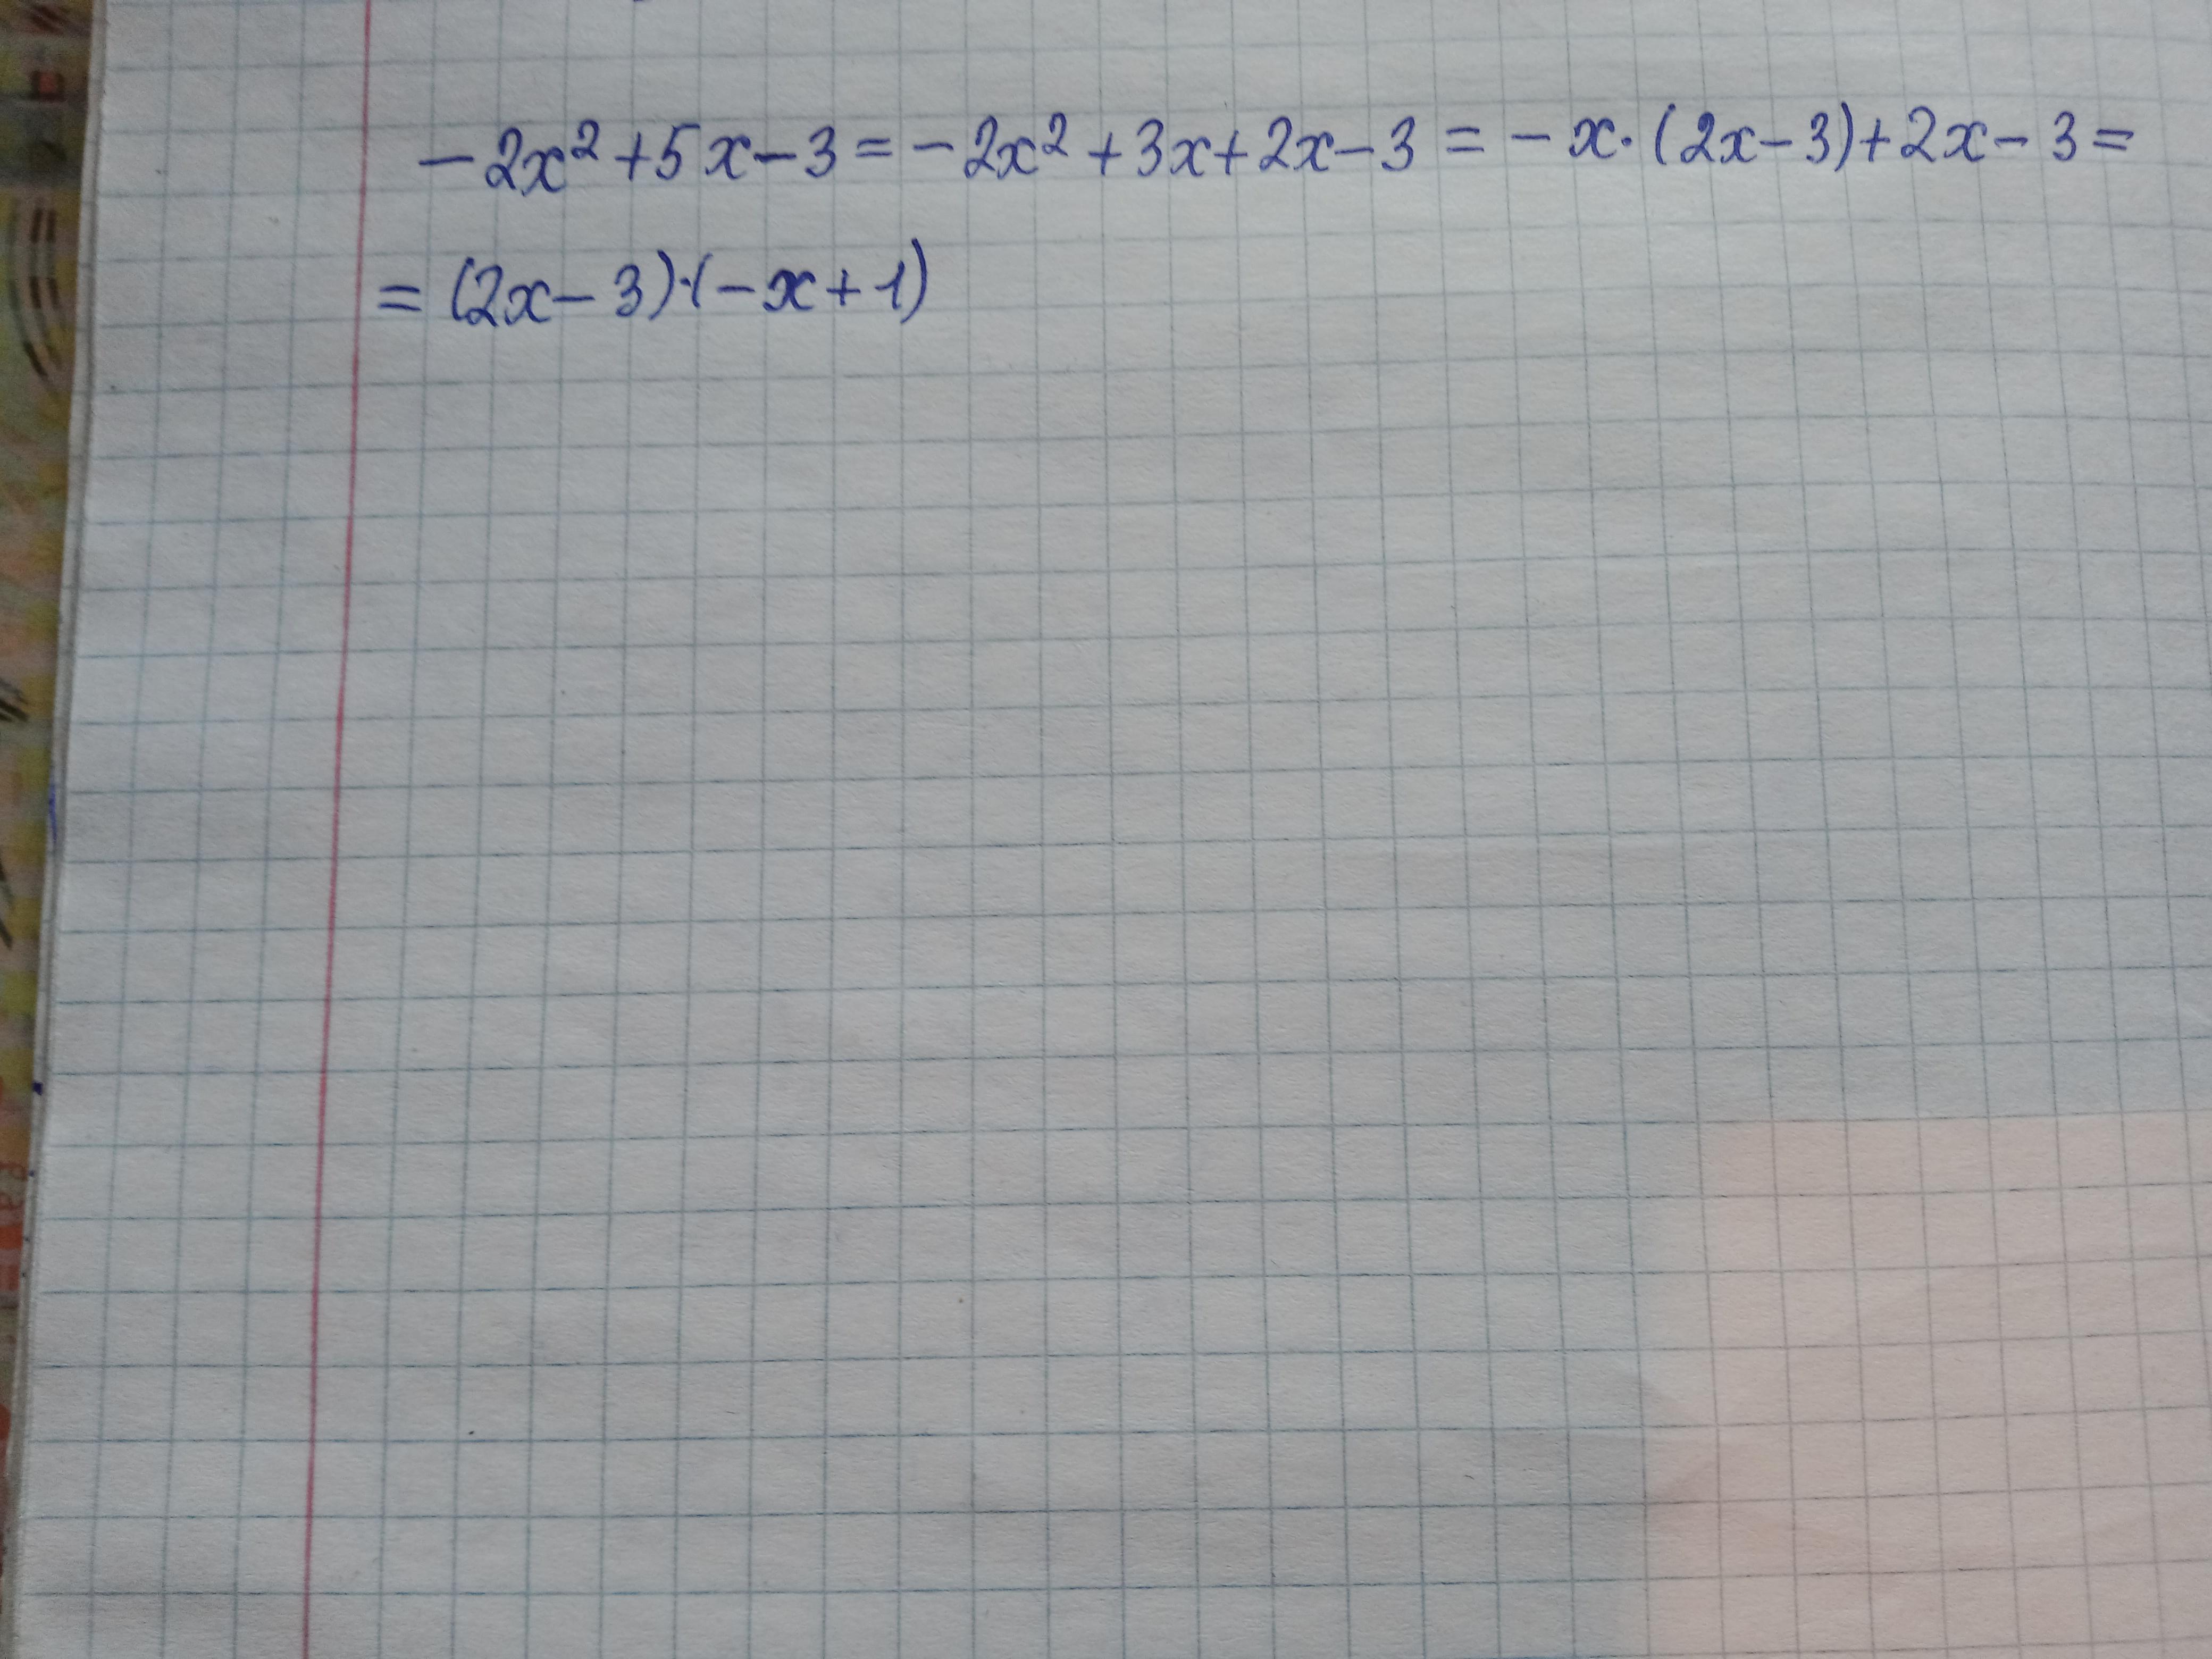 -2x²+5x-3=-2x²+3x+2x-3=-x·(2x-3)+2x-3=
=(2x-3)·(-x+1)